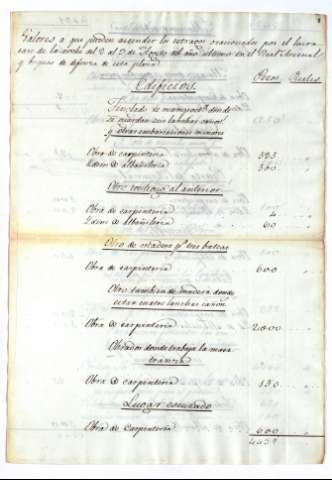 Valores a que pueden ascender los estragos ocasionados por el hura-
can de la noche del 2 al 3 de Agosto del año ultimo en el Real Arsenal
y buques de defensa de esta plaza
Pesos Reales
Edificios
Tinglado de mamposta. donde
se guardan seis lanchas
y otras embarcaciones menores
Obra de carpinteria 385
Idem de albañileria 380
Otro contiguo al anterior
Obra de carpinteria 4
Idem de albañileria 60
Otro de madera y tres
Obra de carpinteria 600
Otro tambien de madera donde
estan cuatro lanchas cañon.
Obra de carpinteria 2000
Obrador donde trabaja la maes-
tranza
Obra de carpinteria 130
Lugar escusado
Obra de carpinteria 600